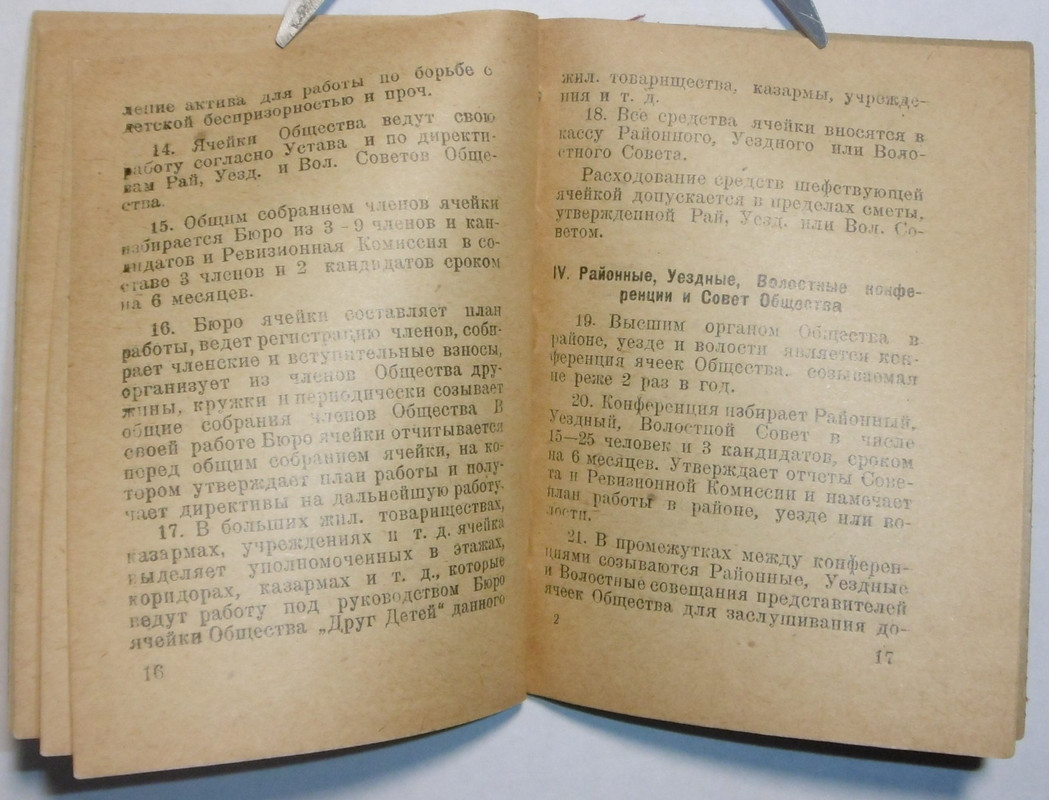 ление актива для работы по борьбе с
детской беспризорностью и проч.
14. Ячейки Общества ведут свою
работу согласно Устава и по директи-
вам Рай, Уезд. и Вол. Советов Обще-
ства.
15. Общим собранием членов ячейки
избирается Бюро из 3-9 членов и кан-
дидатов и Ревизионная Комиссия в со-
ставе 3 членов и 2 кандидатов сроком
на 6 месяцев.
16. Бюро ячейки составляет план
работы, ведет регистрацию членов, соби-
рает членские и вступительные взносы,
организует из членов Общества дру-
жины, кружки и периодически созывает
общие собрания членов Общества В
своей работе Бюро ячейки отчитывается
перед общим собранием ячейки, на ко-
тором утверждает план работы и полу-
чает директивы на дальнейшую работу.
17. В больших жил. товариществах,
казармах, учреждениях и т. д. ячейка
выделяет уполномоченных в этажах,
коридорах, казармах и т. д., которые
ведут работу под руководством Бюро
ячейки Общества „Друг Детей“ данного
16
жил. товарищества, казармы, учрежде-
ния и т. д.
18. Все средства ячейки вносятся в
кассу Районного, Уездного или Воло-
стного Совета.
Расходование средств шефствующей
ячейкой допускается в пределах сметы,
утвержденной Рай, Уезд. или Вол. Со-
ветом.
IV. Районные, Уездные, Волостные конфе-
ренции и Совет Общества
19. Высшим органом Общества в
районе, уезде и волости является кон-
ференция ячеек Общества. созываемая
не реже 2 раз в год.
20. Конференция избирает Районный,
Уездный, Волостной Совет в числе
15—25 человек и 3 кандидатов, сроком
на 6 месяцев. Утверждает отчеты Сове-
та и Ревизионной Комиссии и намечает
план работы в районе, уезде или во-
лости.
21. В промежутках между конферен-
циями созываются Районные, Уездные
и Волостные совещания представителей
ячеек Общества для заслушивания до-
2
17